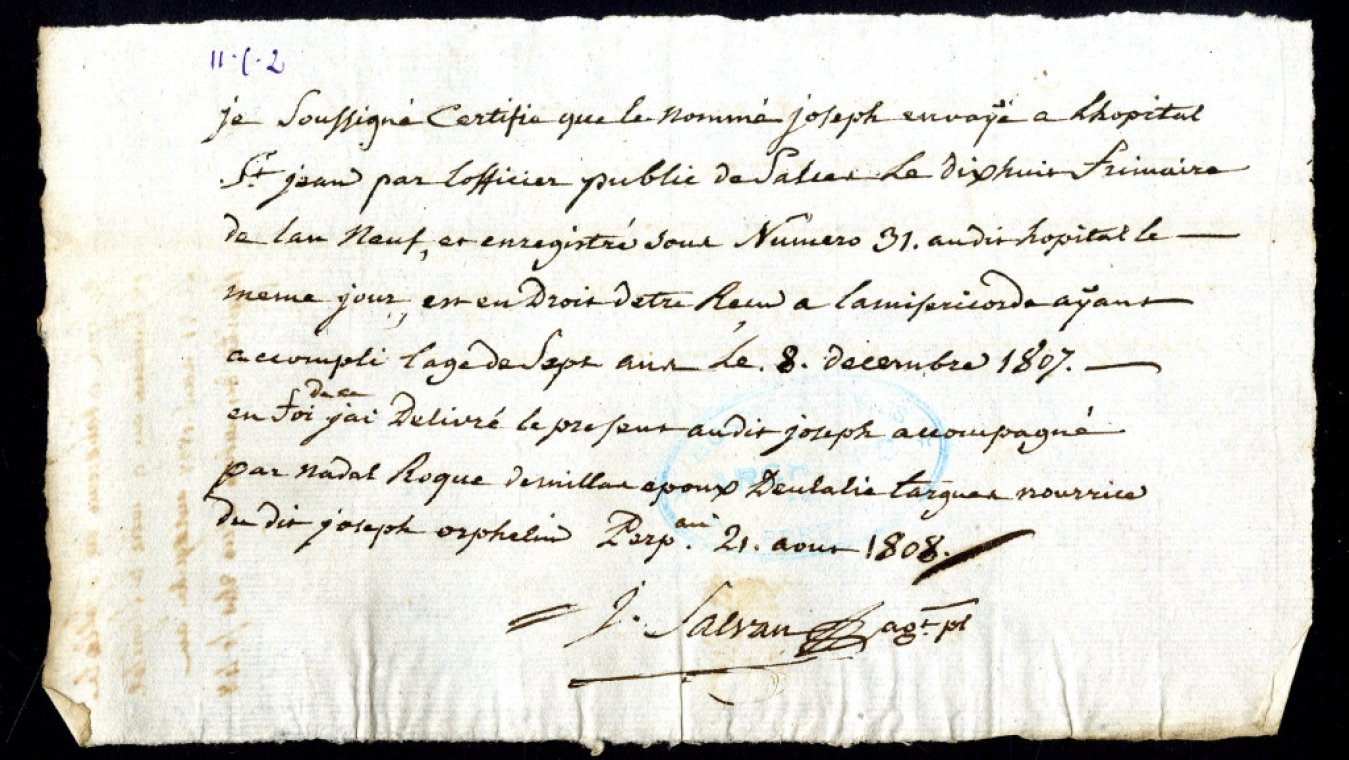 11-C-2
je Soussigné Certifie que le nommé joseph envoyé a Lhopital
St. jean par lofficier public de Salces Le dixhuit frimaire
de lan Neuf, et enregistré sous Numero 31. audit hopital le —
meme jour, est en Droit detre Recu a lamisericorde ayant
accompli lage de Sept ans Le. 8. decembre 1807. —
en foi de ce jai Delivré le present audit joseph accompagné
par nadal Roque demillas epoux Deulalie targues nourrice
du dit joseph orphelin Perp.an 21. aout 1808.
J. Salvan agt. pl